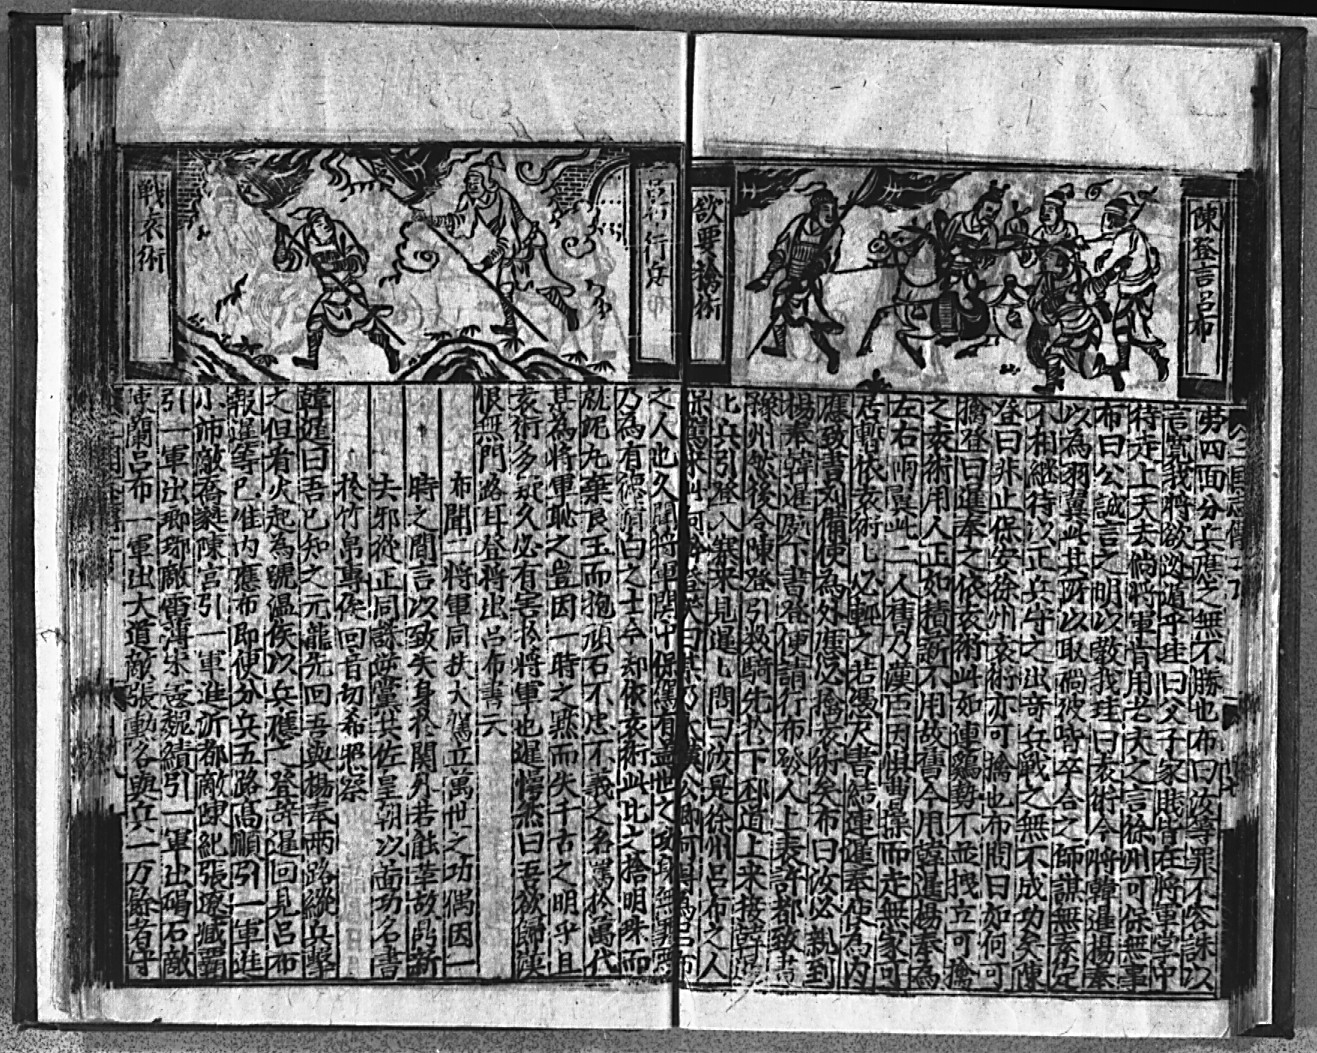 陳登言呂布
欲要擒術
勞四面分兵應之無不勝也布曰汝等罪不容誅以
言寬我將欲逆道乎珪曰父子家眷皆在將軍掌中
待走上天去倘將軍肯用老夫之言徐州可保無事
布曰公誠言之明以教我珪曰袁術今將韓暹楊奉
以為羽翼此其所以取禍彼皆卒合之師謀無素定
不相繼待以正兵守之出奇兵戰之無不成功矣陳
登曰非止保安徐州袁術亦可擒也布問曰如何可
擒登曰暹奉之依袁術此如連鷄勢不並栖立可擒
之袁術用人正如積薪不用故舊今用韓暹楊奉為
左右 此二人舊乃漢臣因惧曹操而走無家可
居暫依袁術七必輕之若馮尺書結連暹奉使為內
應致書刘備使為外應必擒袁術矣布曰汝必親到
楊奉韓暹處下書登便請行布發人上表許都致書
豫州然後令陳登引数騎先於下邳道上來接韓暹
七兵引登入寨來見暹七問曰汝是徐州呂布之人
呂布行兵
戰袁術
之人也久聞將軍關中保駕有蓋世之功
乃為有德 曰之士今却依袁術此比之捨明珠而
就泥丸棄良玉而抱頑石不忠不義之名罵於萬代
甚為將軍恥之豈因一時之 而失千古之明乎且
袁術多疑久必有害於將軍也暹愕然曰吾欲歸漢
恨無門路耳登將出呂布書云
布聞二將軍同扶大駕立萬世之功偶因一
時之間言以致失身於關外若能革故 新
去邪從正同誅逆黨共佐皇朝以 功名書
於竹帛專俟回音切希照察
韓暹曰吾已知之元龍先回吾與楊奉兩路縱兵擊
之但看火起為號溫侯以兵應之登辞暹回見呂布
報暹等已准內應布即便分兵五路高順引一軍進
小沛敵喬蕤陳宮引一軍進沂都敵陳紀張遼臧霸
引一軍出瑯琊敵雷薄宋憲魏續引一軍出碣石敵
陳蘭呂布一軍出大道敵張勳各與兵一万餘者守